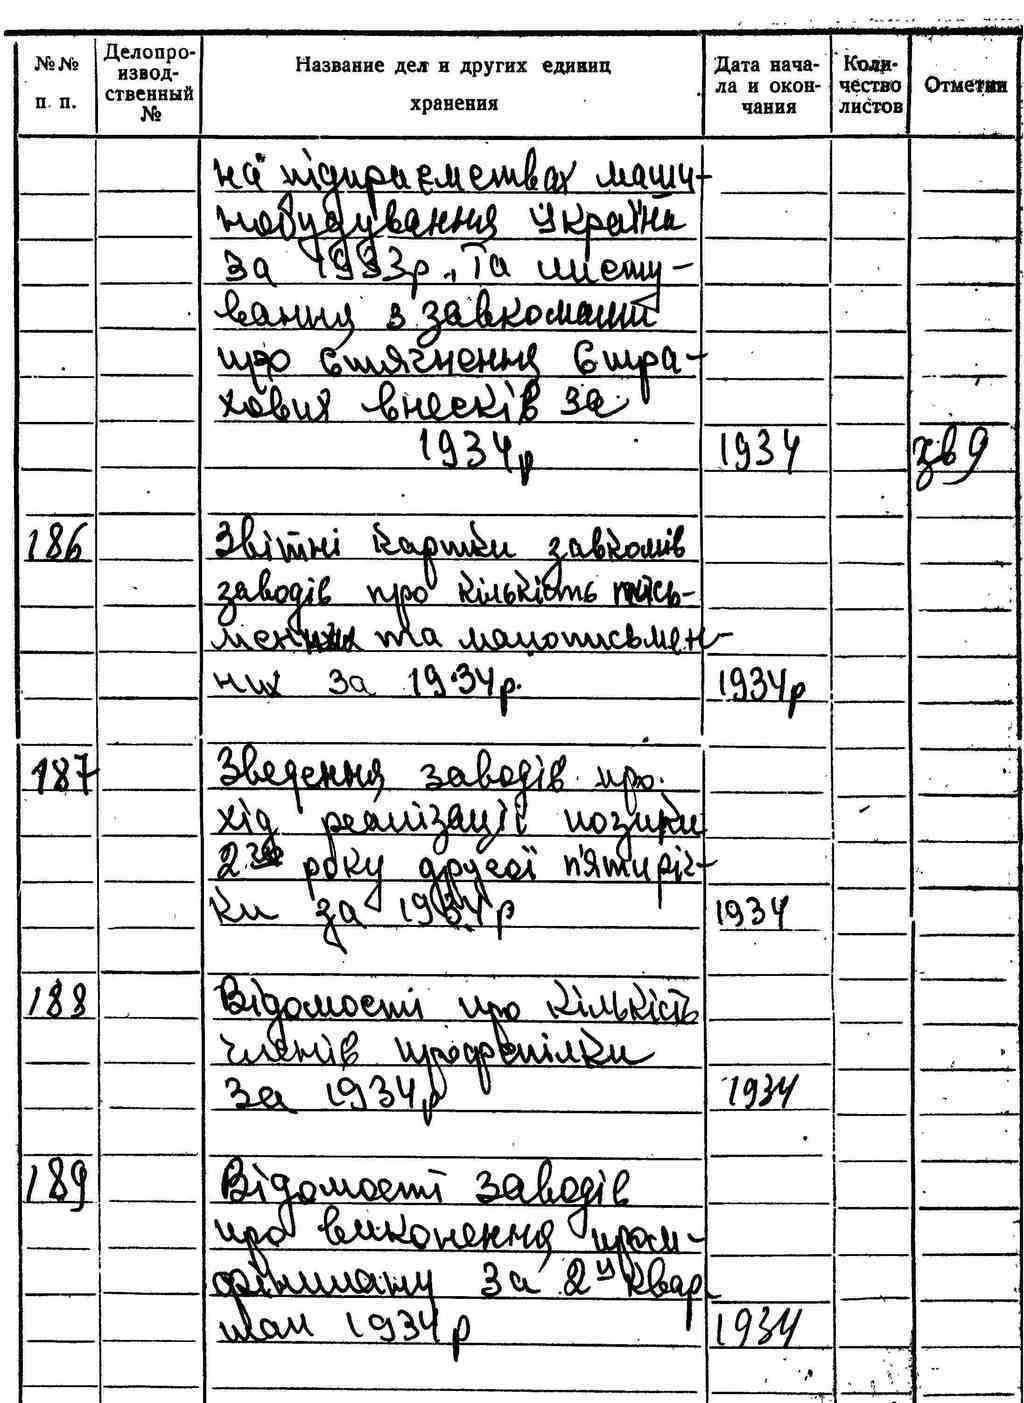 №№ п. п.
Делопроизводственный №
Название дел и других единиц хранения
Дата начала и окончания
Количество листов
Отметки
на підприємствах маши-
нобудування України
за 1933р, та листу-
вання з завкомами
про стягнення стра-
хових внесків за
1934р 1934
186 Звітні картки завкомів
заводів про кількість пись-
менних та малописьмен-
них за 1934р. 1934р
187 Зведення заводів про
хід реалізації позики
2го року другої п'ятиріч-
ки за 1934р 1934
188 Відомості про кількість
членів профспілки
за 1934р 1934
189 Відомості заводів
про виконення пром-
фінплану за 2й квар
тал 1934р 1934